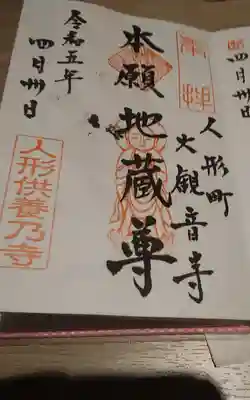 奉拝
四月卅日
人形町
大観音寺
本願地蔵尊
令和五年
四月卅日
人形供養乃寺